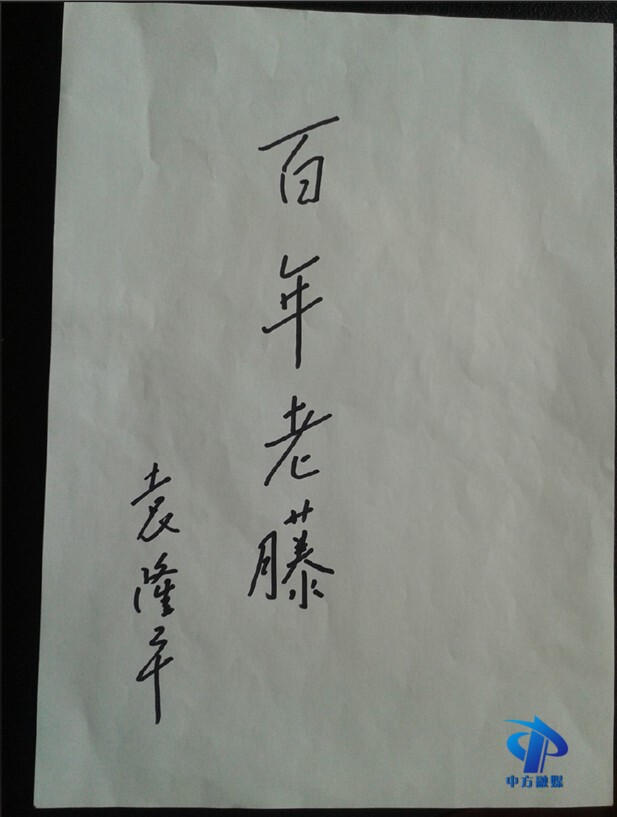 百年老藤
袁隆平
中方融媒